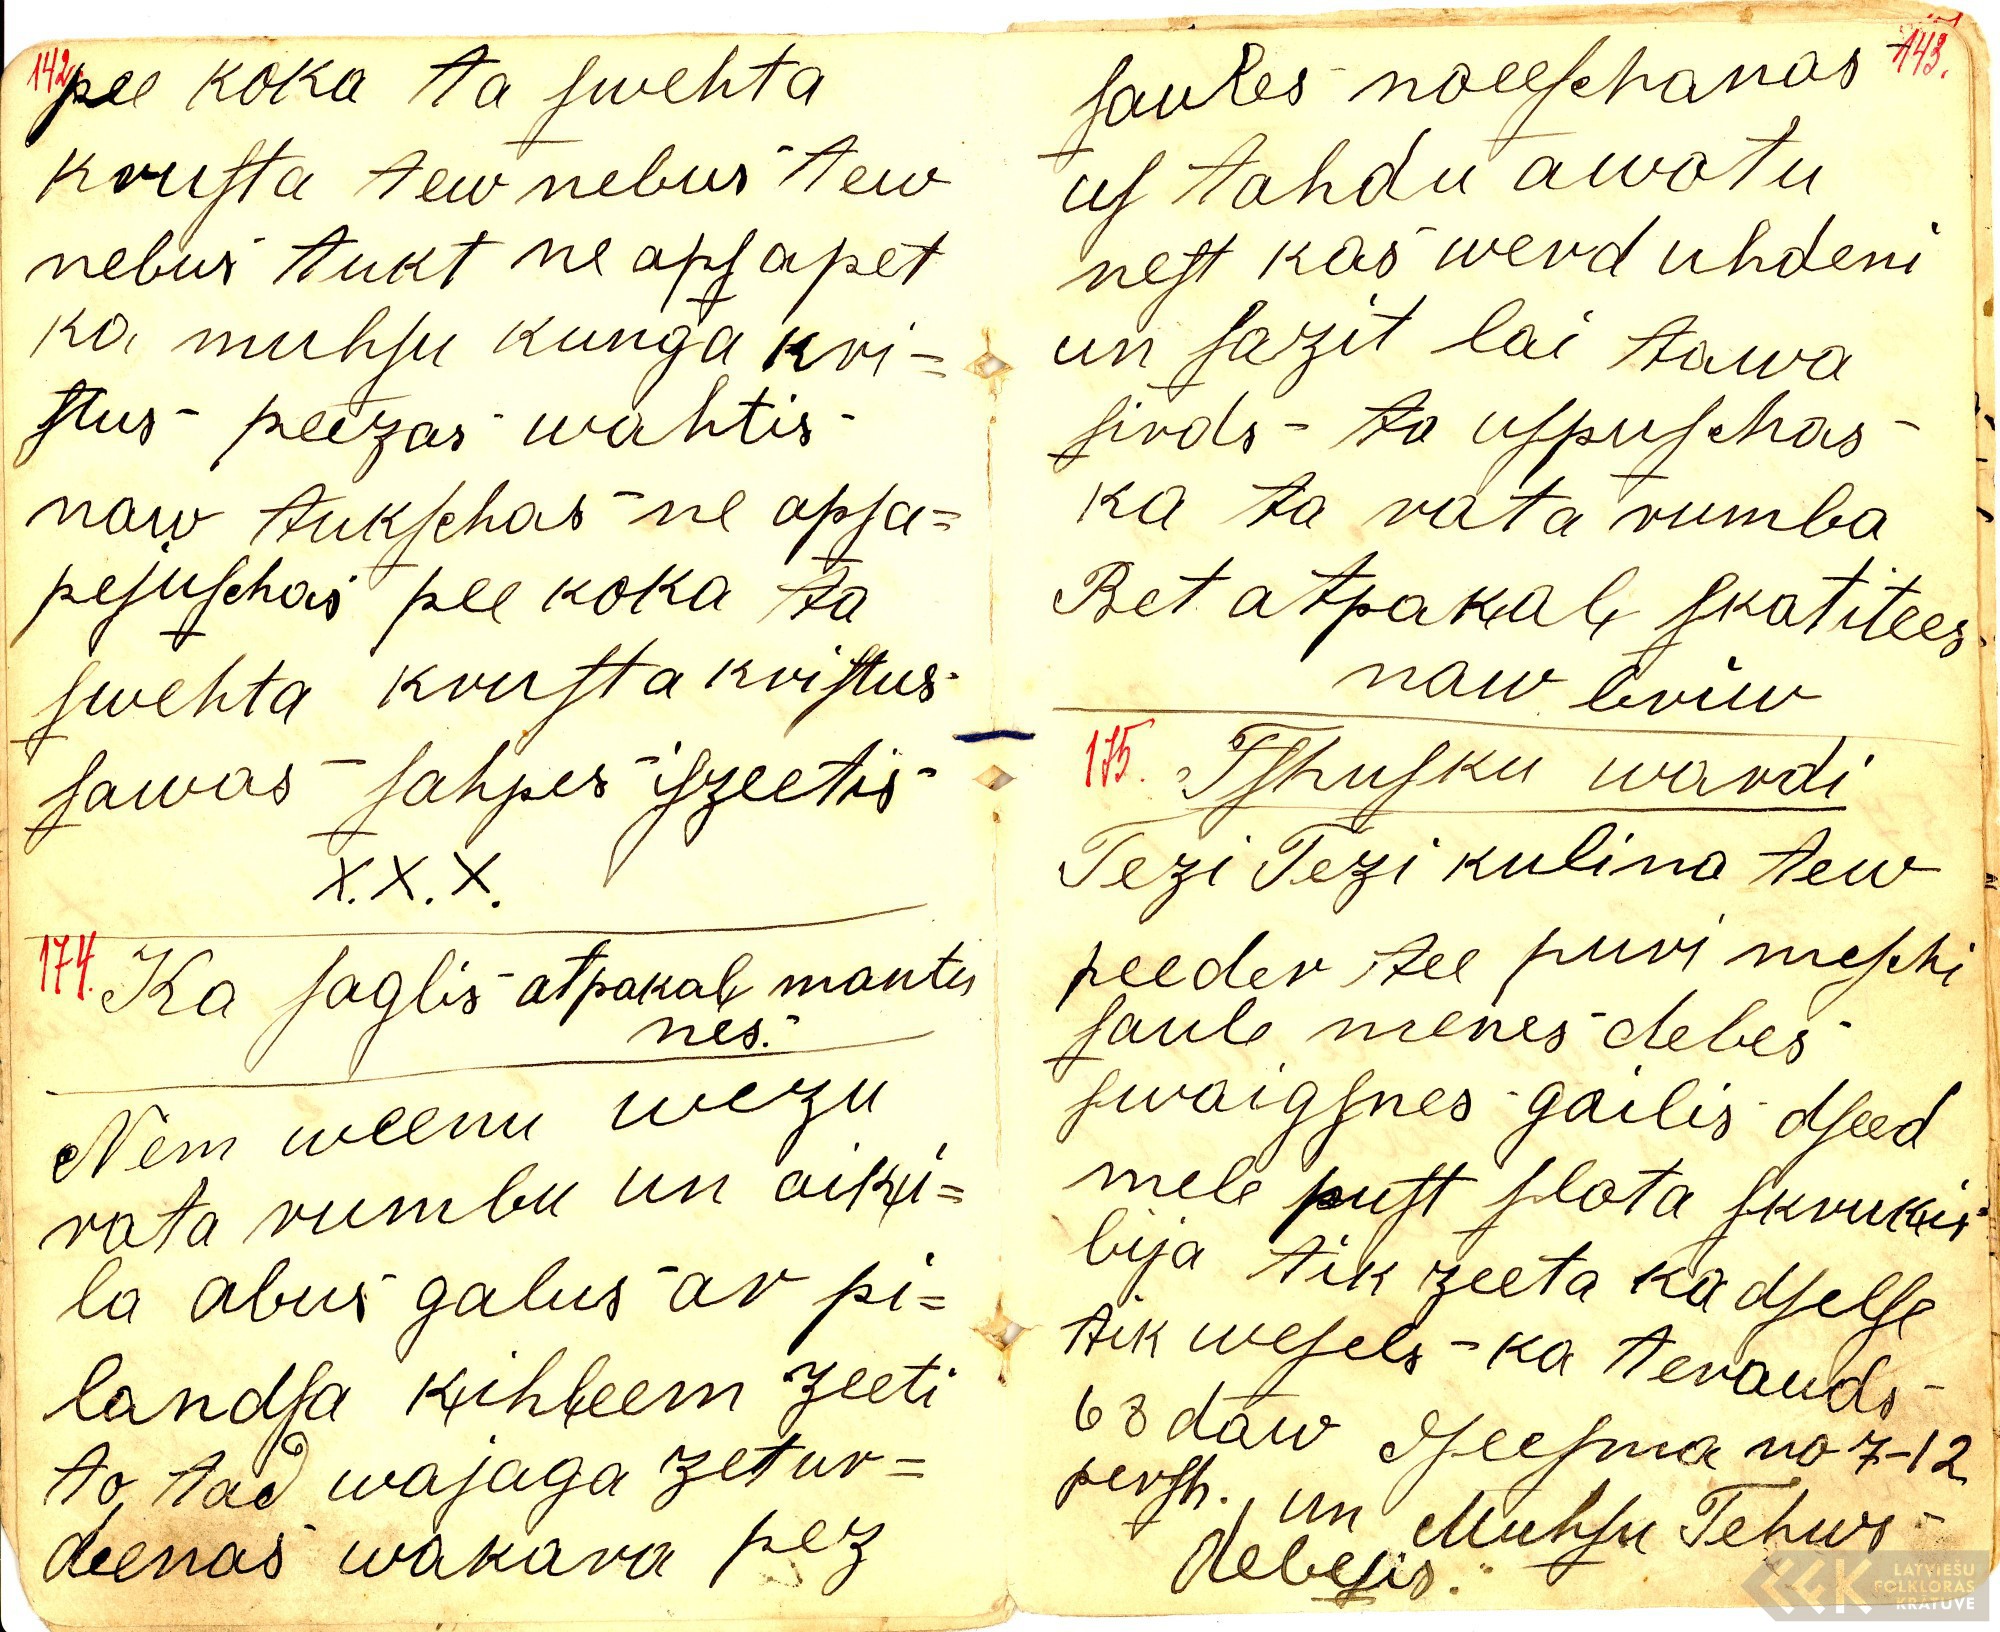 142.
pee koka ta ſwehta
kruſta tew nebus tew
nebus tukt ne apſapet
ka muhſu kunga kri=
ſtus peezas wahtis
naw tukſchas ne apſa=
pejuſchas pee koka ta
ſwehta kruſta kriſtus
ſawas ſahpes iſzeetis
X.X.X.
174. Ka ſaglis atpakaļ mantu
nes.
Ņem weenu wezu
rata rumbu un aikļi=
la abus galus ar pi=
landſa ķihļeem zeeti
to, tad wajaga zetur=
deenas wakara pez
143.
ſaules noeeſchanas
uſ tahdu awotu
neſt kas werd uhdeni
un ſazit lai tawa
ſirds ta uſpuſchas
ka ta rata rumba
Bet atpakaļ ſkatitees
naw briw
175. Tſhuſku wardi
Tezi Tezi kulina tew
peeder tee puri meſchi
ſaule menes debes
ſwaigſnes gailis dſeed
mele puſt ſlota ſkrukis
bija tik zeeta ka dſelſe
tik weſels ka terauds
68 daw dſeeſma no 7-12
perſh. un Muhſu Tehws
debeſis.
LATVIEŠU
FOLKLORAS
KRĀTUVE